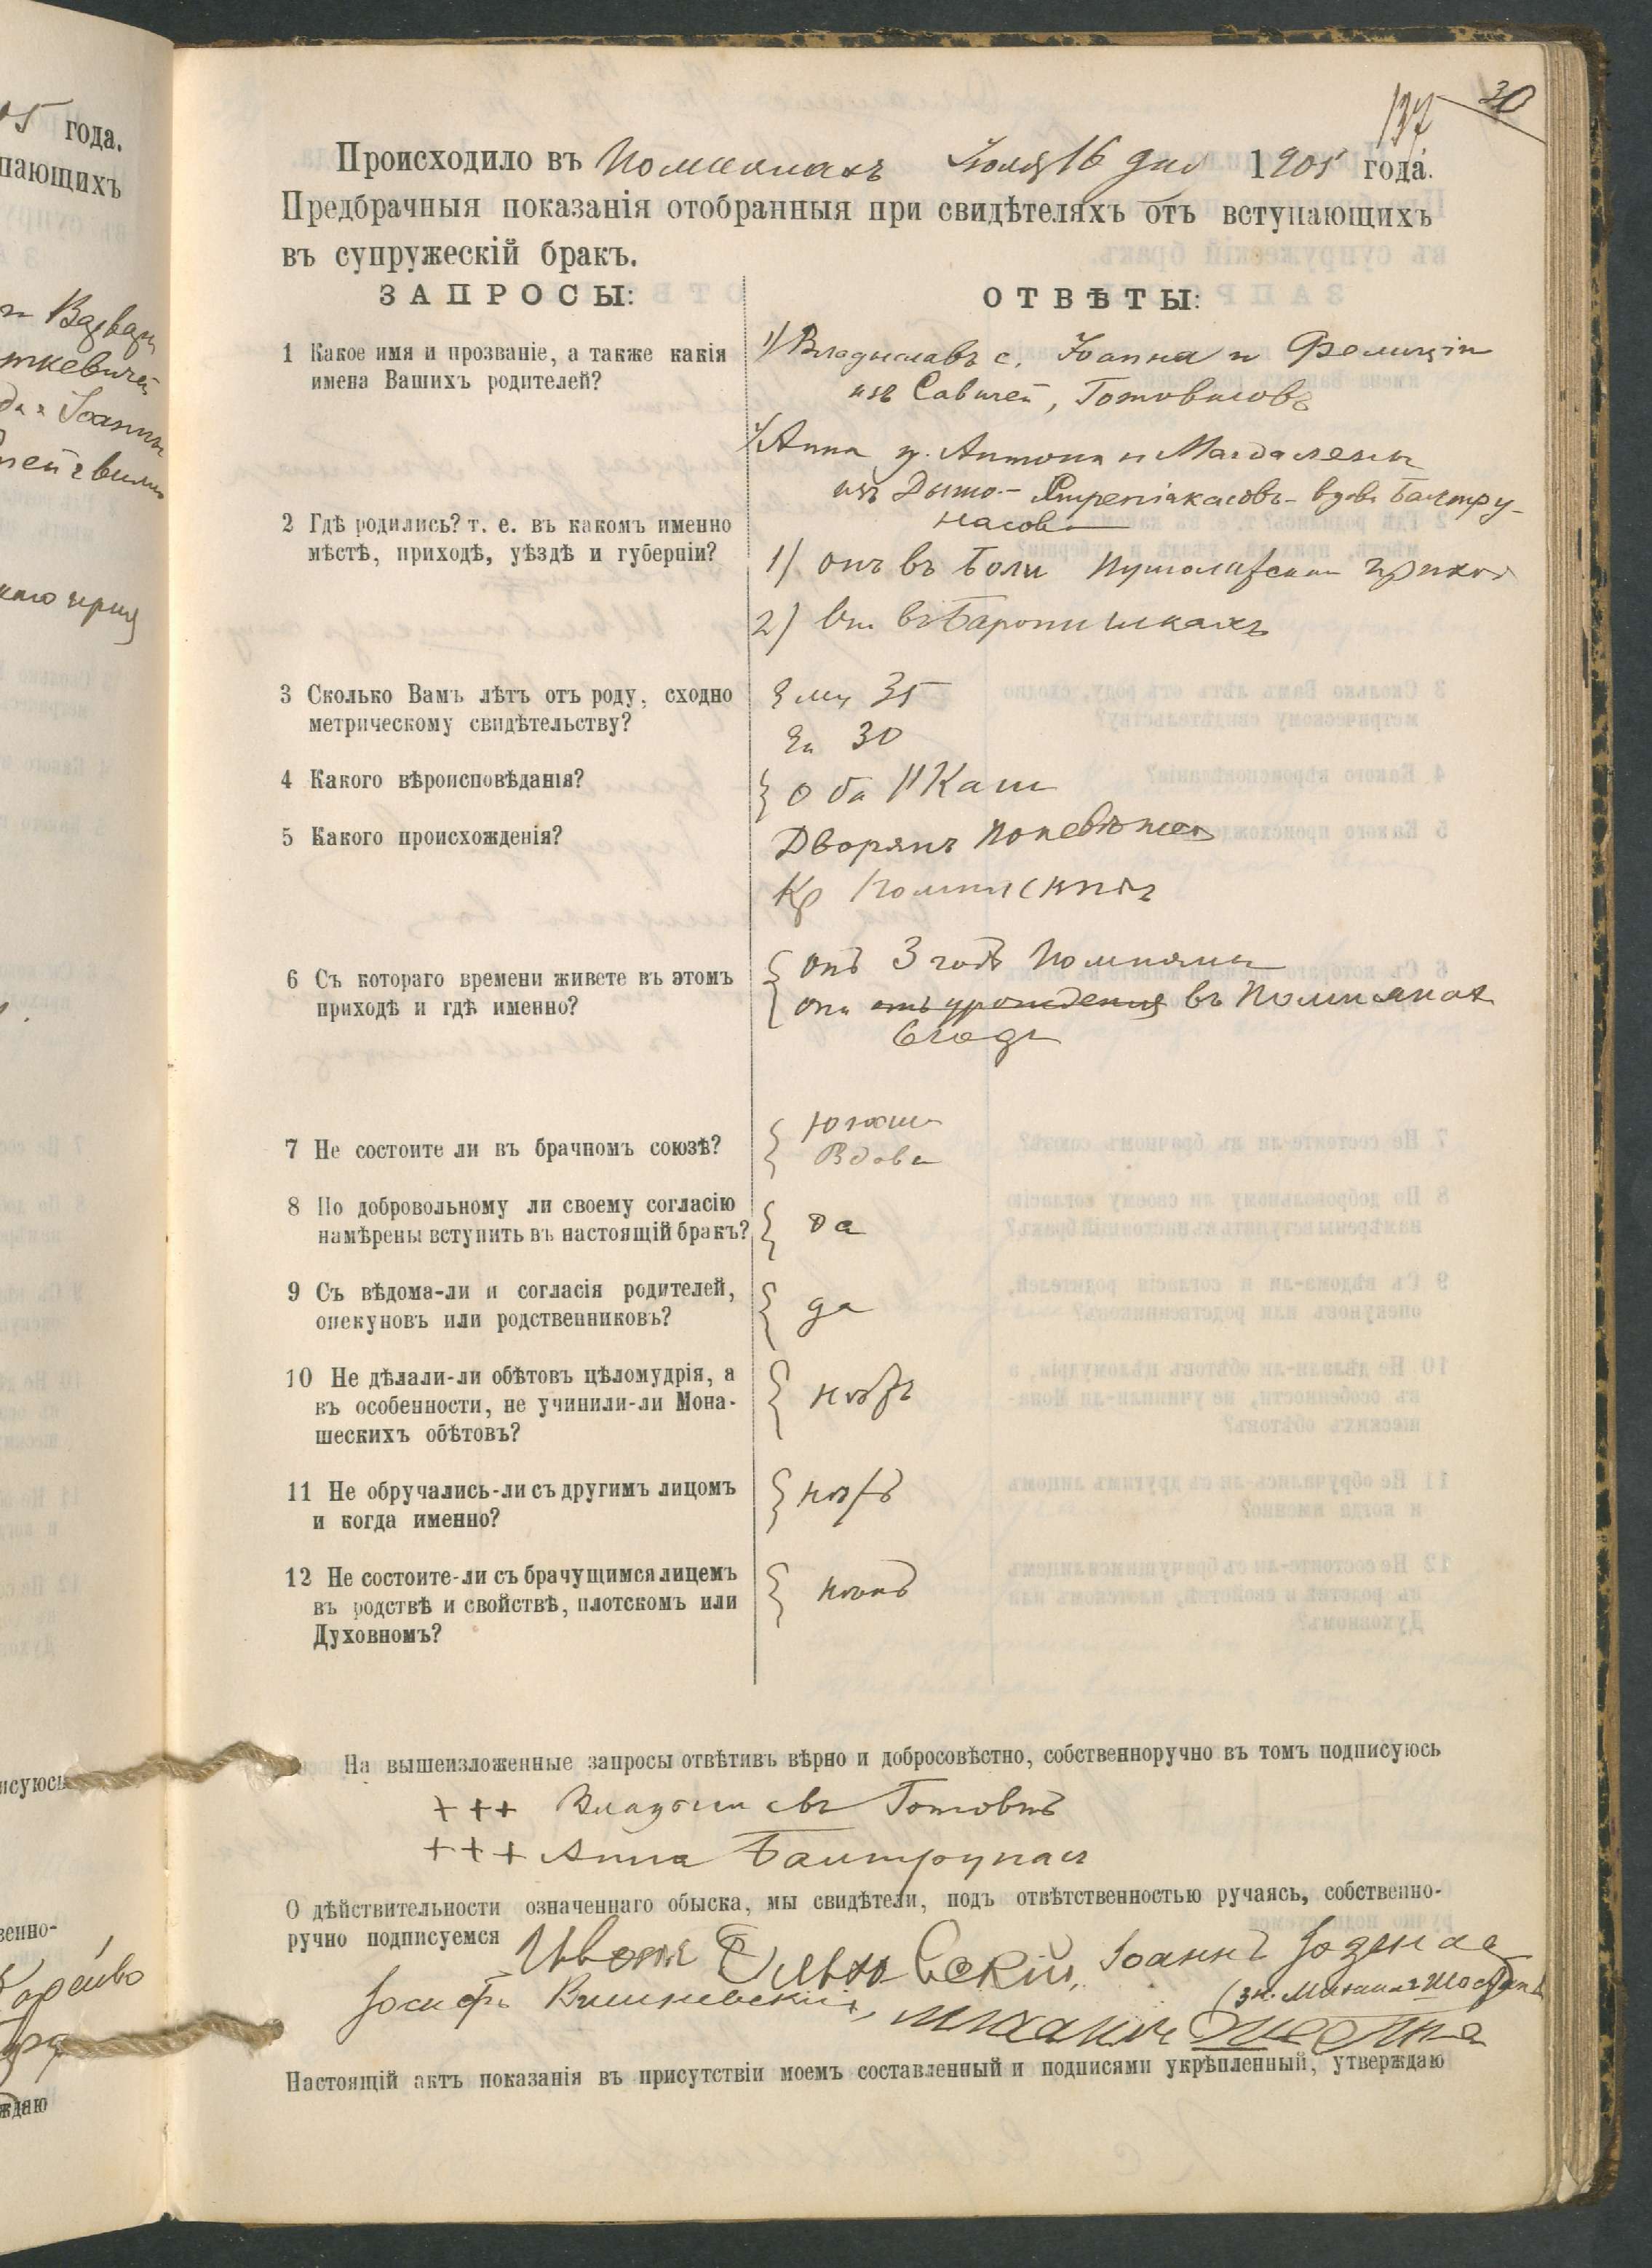 15 года.
пающихъ
137 30
Происходило въ Помпянахъ Іюля 16 дня 1905 года.
Предбрачныя показанія отобранныя при свидѣтеляхъ отъ вступающихъ
въ супружескій бракъ.
ЗАПРОСЫ:
ОТВѢТЫ:
1 Какое имя и прозваніе, а также какія
имена Вашихъ родителей?
1) Владиславъ с. Іоанна и Фелиціи
изъ Савичей, Готовтовъ
Анна д. Антона и Магдалены
изъ вдова Балтру-
насова
2 Гдѣ родились? т. е. въ какомъ именно
мѣстѣ, приходѣ, уѣздѣ и губерніи?
1) онъ въ Боли
2) Она въ Баронишкахъ
3 Сколько Вамъ лѣтъ отъ роду, сходно
метрическому свидѣтельству?
Ему 35
Ей 30
4 Какого вѣроисповѣданія?
Оба РКат
5 Какого происхожденія?
Дворянъ Поневѣжск
Кр
6 Съ котораго времени живете въ этомъ
приходѣ и гдѣ именно?
Онъ 3 года Помпяны
она отъ урожденія въ Помпянах
6 годъ
7 Не состоите ли въ брачномъ союзѣ?
Юноша
Вдова
8 По добровольному ли своему согласію
намѣрены вступить въ настоящій бракъ?
да
9 Съ вѣдома-ли и согласія родителей,
опекуновъ или родственниковъ?
да
10 Не дѣлали-ли обѣтовъ цѣломудрія, а
въ особенности, не учинили-ли Мона-
шескихъ обѣтовъ?
нѣтъ
11 Не обручались-ли съ другимъ лицомъ
и когда именно?
нѣтъ
12 Не состоите-ли съ брачущимся лицемъ
въ родствѣ и свойствѣ, плотскомъ или
Духовномъ?
нѣтъ
На вышеизложенные запросы отвѣтивъ вѣрно и добросовѣстно, собственноручно въ томъ подписуюсь
+++ Владиславъ Готовтъ
+++ Анна Балтрунасъ
О дѣйствительности означеннаго обыска, мы свидѣтели, подъ отвѣтственностью ручаясь, собственно-
ручно подписуемся
Іоаннъ
Іосифъ Вишневскій,
Настоящій актъ показанія въ присутствіи моемъ составленный и подписями укрѣпленный, утверждаю